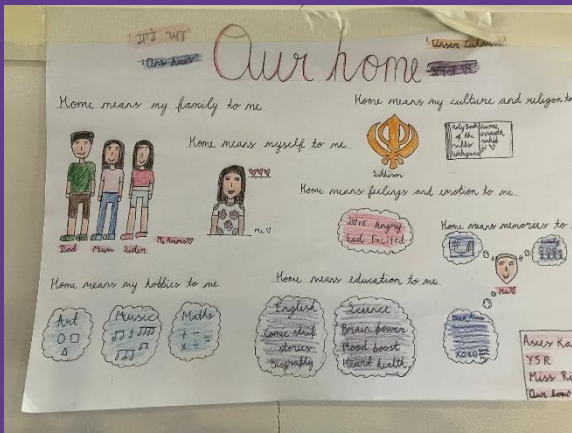 ਸਾਡੇ ਘਰ
'Ons huis'
Our home
Home means my family to me
Home means my culture and religon to
Home means myself to me
Holy Book
of the
sikhs
sahib
ji ♡
Sikhism
Home means feelings and emotion to me
Me ♡
LOVE Angry
Sad Excited
Dad Mum Sister
Home means memories to
Me♡
Home means my hobbies to me
Home means education to me
Art
Music
Maths
+ -
× ÷ =
English
Comic strip
stories
Biography
Science
Brain power
Mood boost
Heart health
XOXO
Asees Ka
Y5R
Miss Ri
Our home